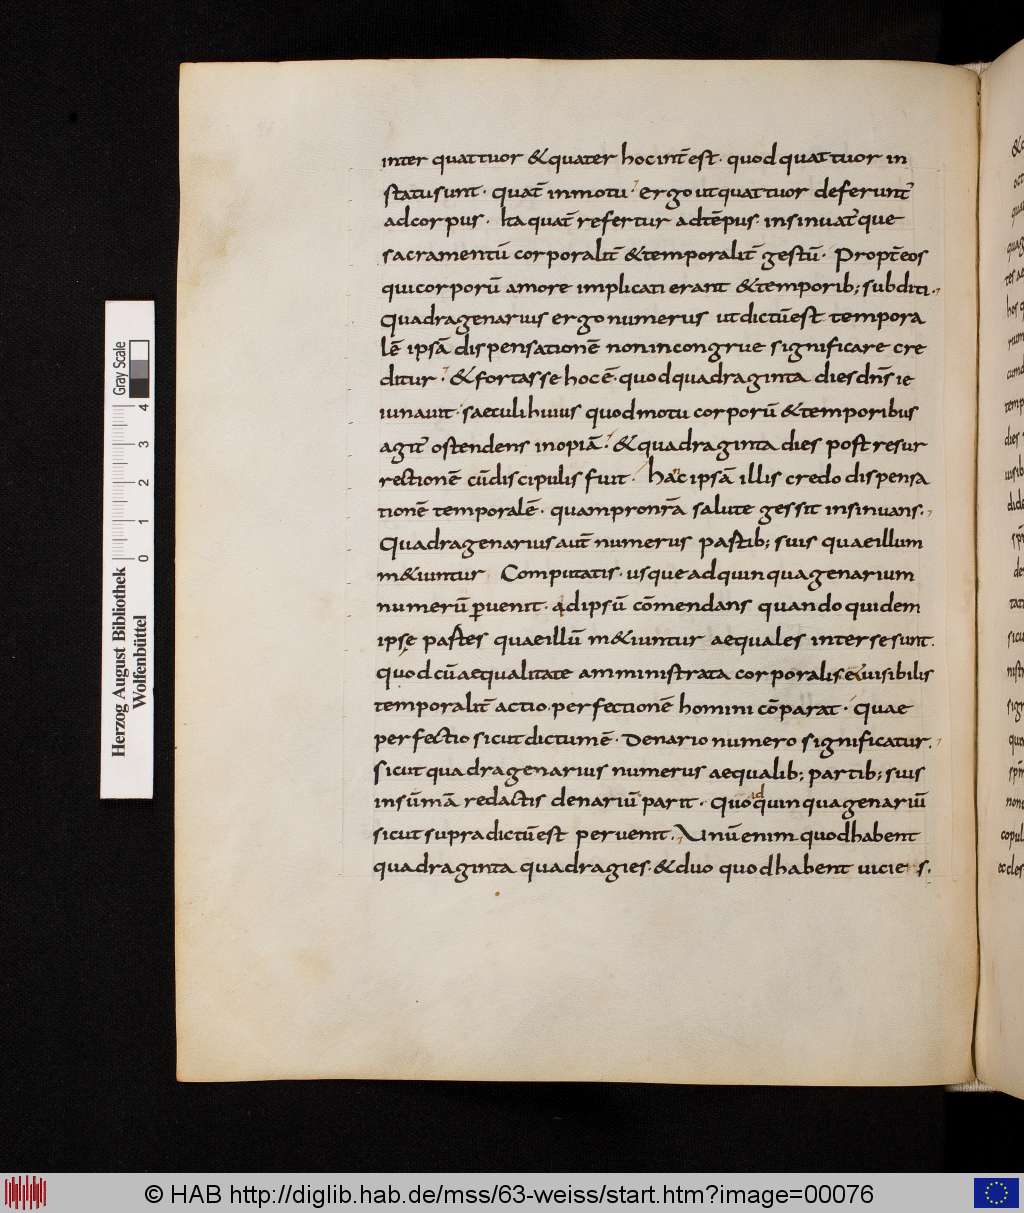 inter quattuor &quater hocint̄est· quodquattuor in
statusunt· quat̄ inmotu· ergoutquattuor deferunt̄
adcorpus· Ita quat̄ refertur adtēpus· insinuat̄que
sacramentū corporalit̄ &temporalit̄ gestū· Propt̄eos
quicorporū amore implicati erant &temporib; subditi·
Quadragenarius ergonumerus utdictūest tempora
lē ipsā dispensationē nonincongrue significare cre
ditur· &fortasse hocē· quodquadraginta diesdn̄s ie
iunauit· saeculihuius quodmotu corporū &temporibus
agit̄ ostendens inopiā· &quadraginta dies postresur
rectionē cūdiscipulis fuit· hac ipsā illis credo dispensa
tionē temporalē· quampronr̄a salute gessit insinuans·
Quadragenariusaut̄ numerus partib; suis quaeillum
m&iuntur Computatis· usqueadquinquagenarium
numerū ꝑuenit· adipsū cōmendans quandoquidem
ipse partes quaeillū m&iuntur aequales intersesunt·
quodcūaequalitate amministrata corporalis& uisibilis
temporalit̄ actio· perfectionē homini cōparat· Quae
perfectio sicutdictumē· Denario numero significatur·
sicutquadragenarius numerus aequalib; partib; suis
insūmā redactis denariū parit· Quo id quinquagenariū
sicutsupradictūest peruenit· Unūenim quodhabent
quadraginta quadragies· &duo quodhabent uicies·
Herzog August Bibliothek
Wolfenbüttel
0 1 2 3 4
Gray Scale
© HAB http://diglib.hab.de/mss/63-weiss/start.htm?image=00076